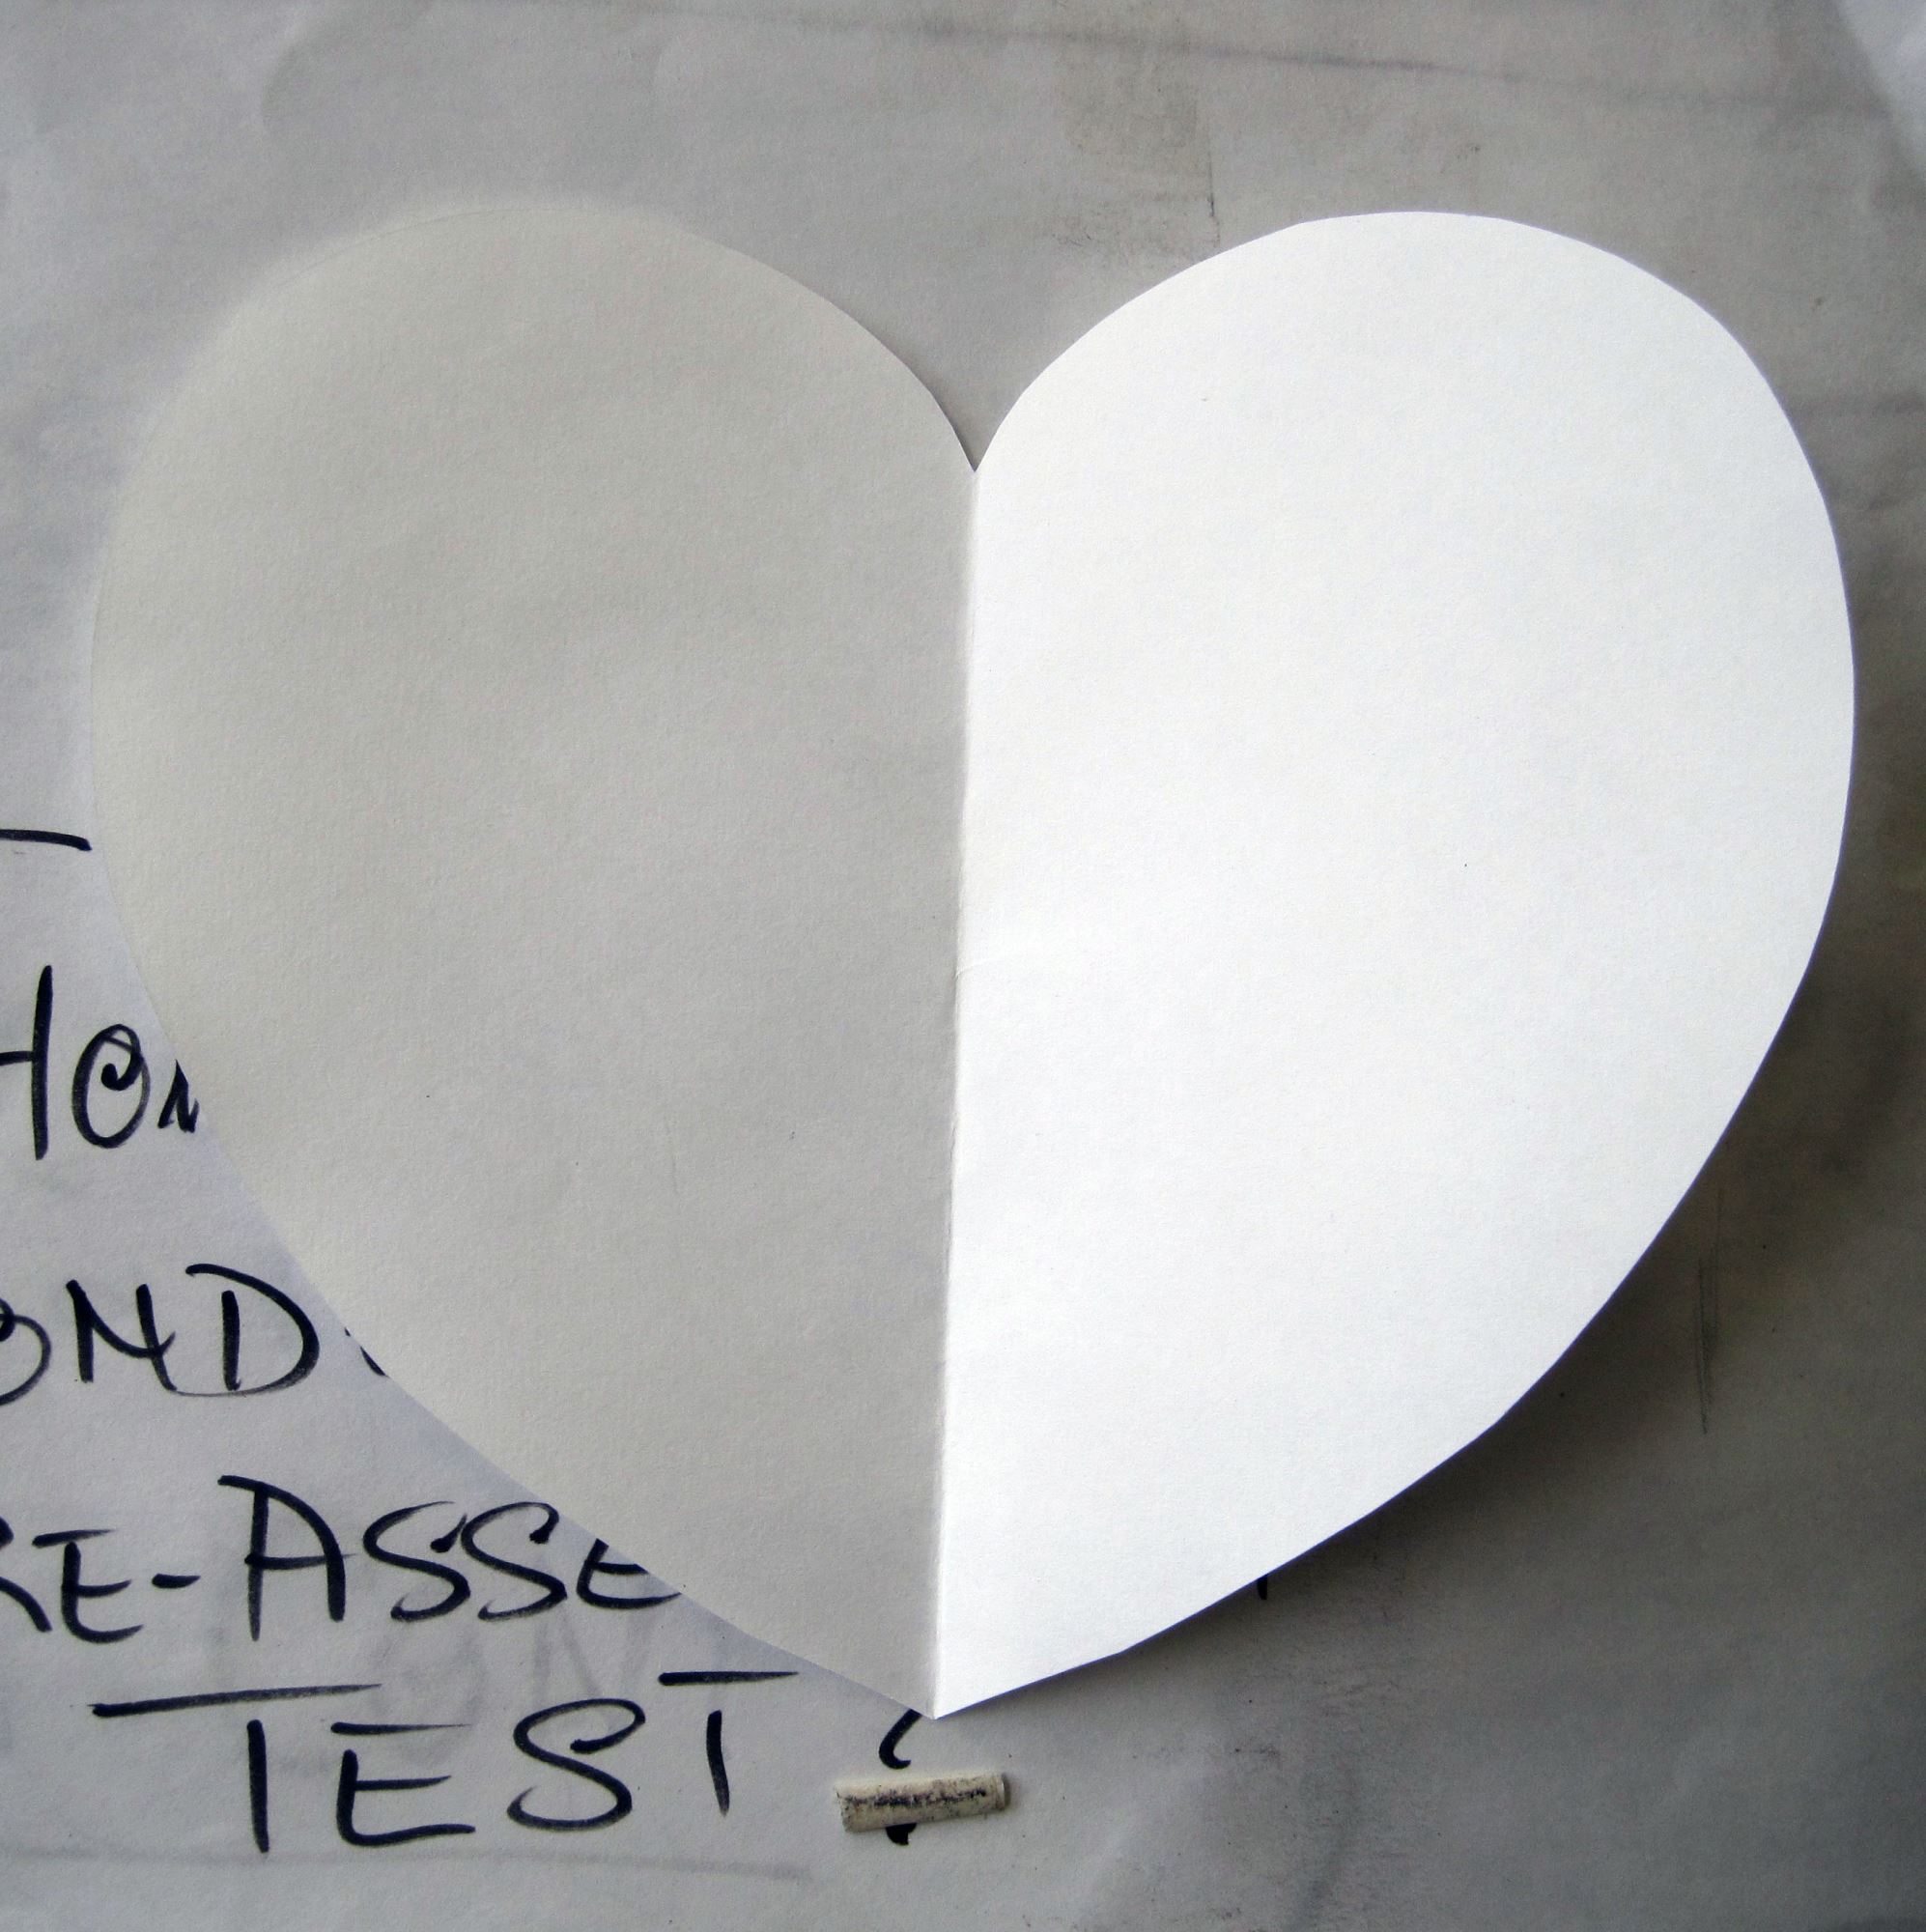 HON
OND
RE-ASSE
TEST?